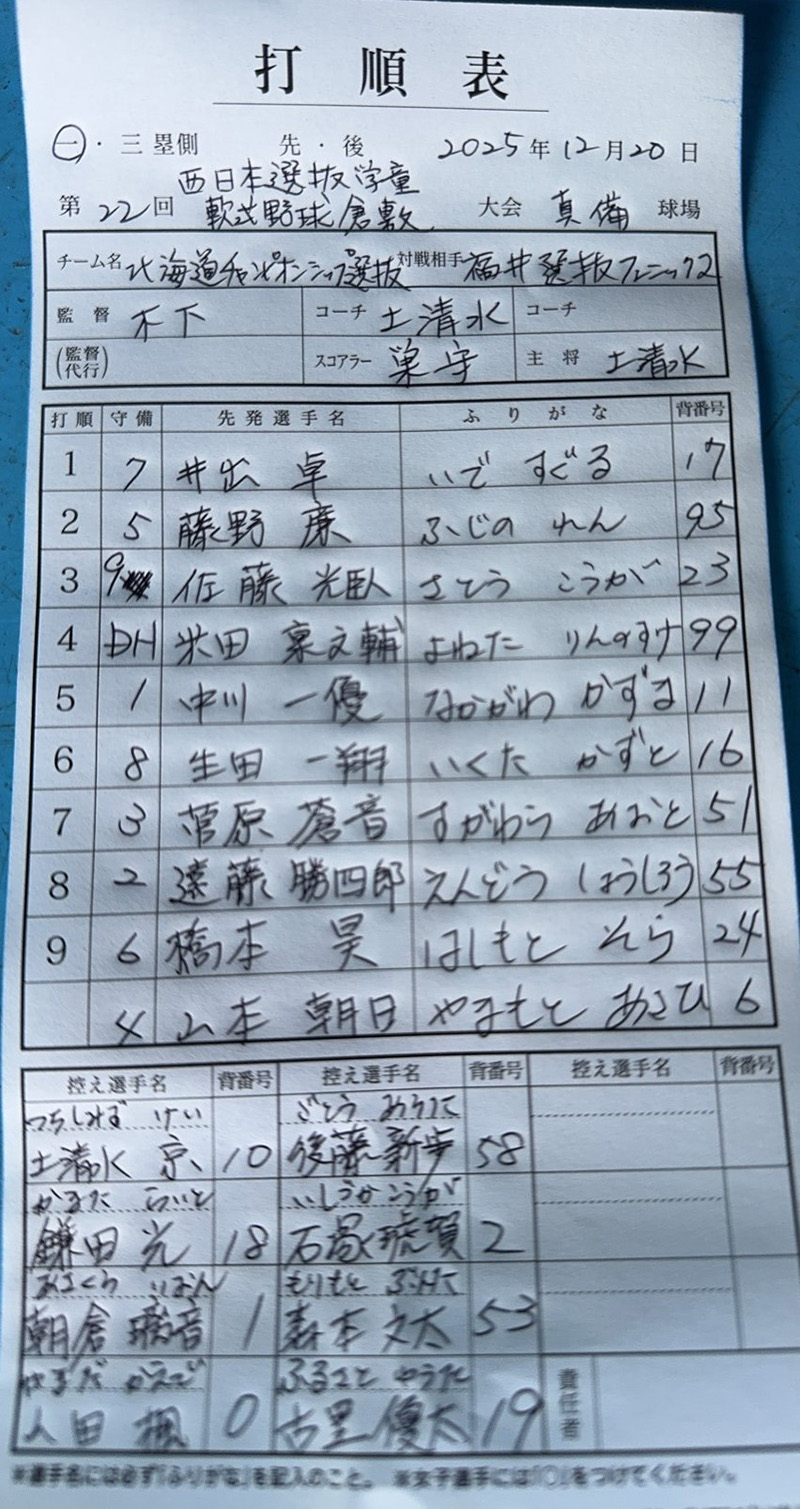 打順表
㊀・三塁側 先・後 2025年12月20日
西日本選抜学童
第22回 軟式野球倉敷 大会 真備 球場
チーム名 北海道チャンピオンシップ選抜 対戦相手 福井選抜フェニックス
監督 木下 コーチ 土清水 コーチ
(監督代行) スコアラー 巣守 主将 土清水
打順 守備 先発選手名 ふりがな 背番号
1 7 井出 卓 いで すぐる 17
2 5 藤野 廉 ふじの れん 95
3 9 佐藤 光臥 さとう こうが 23
4 DH 米田 稟之輔 よねた りんのすけ 99
5 1 中川 一優 なかがわ かずま 11
6 8 生田 一翔 いくた かずと 16
7 3 菅原 蒼音 すがわら あおと 51
8 2 遠藤 勝四郎 えんどう しょうしろう 55
9 6 橋本 昊 はしもと そら 24
4 山本 朝日 やまもと あさひ 6
控え選手名 背番号 控え選手名 背番号 控え選手名 背番号
つちしみず けい ごとう あらた
土清水 京 10 後藤新歩 58
かまた らいと いしづか こうが
鎌田光 18 石塚琥賀 2
あさくら りおん もりもと ぶんた
朝倉璃音 1 森本文太 53
かえで ふるさと ゆうた
田楓 0 古里優太 19
責任者
※選手名には必ず「ふりがな」を記入のこと。 ※女子選手には「○」をつけてください。